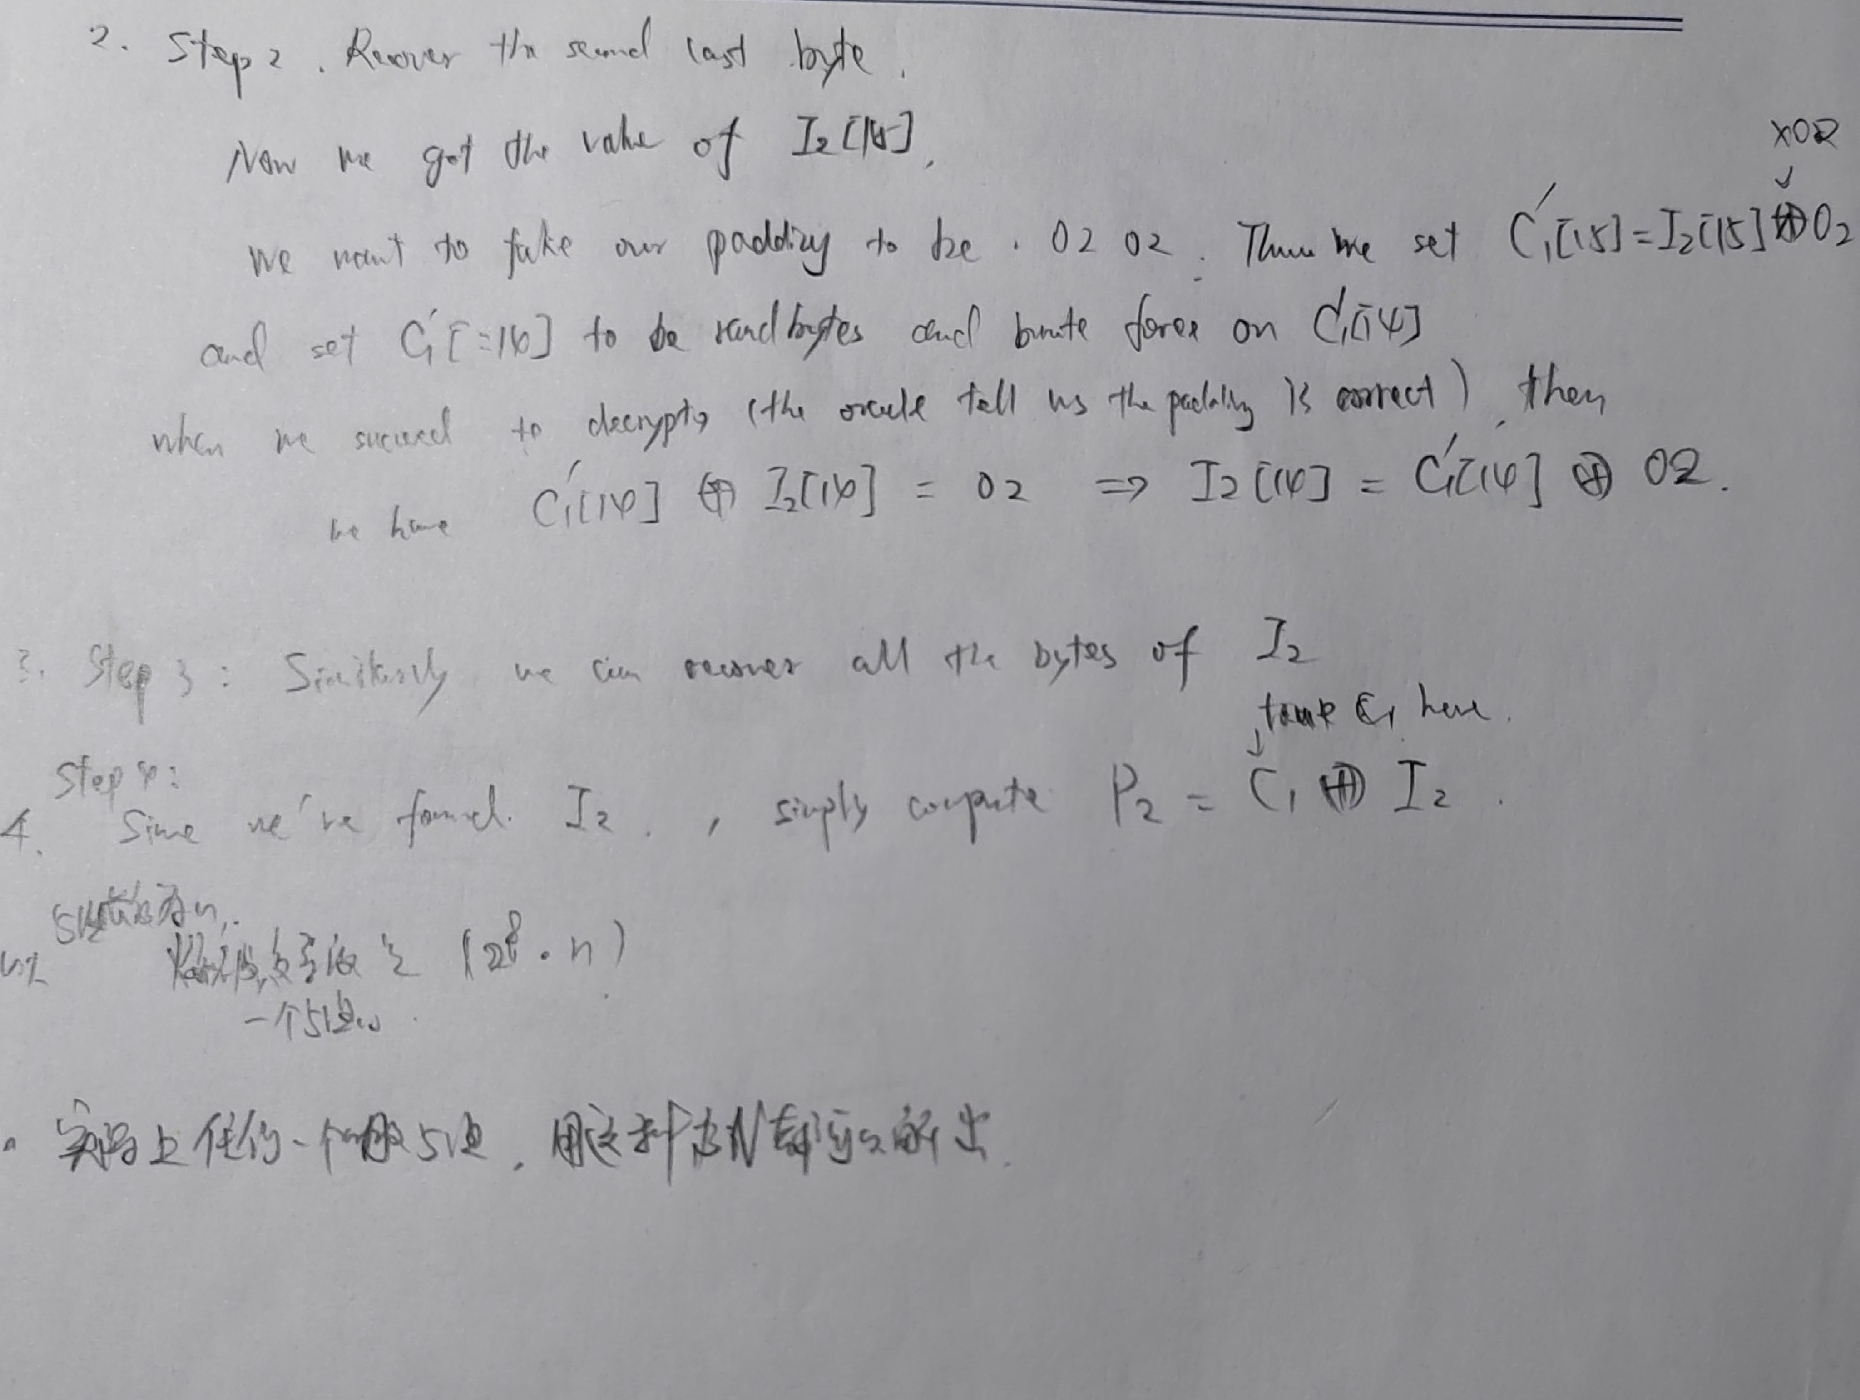 2. Step 2. Recover the second last byte.
Now we got the value of I₂[15],
XOR
we want to fake our padding to be . 02 02. Then we set C₁'[15] = I₂[15] ⊕ 02
and set C₁'[:14] to be rand bytes and brute force on C₁'[14]
when we succeed to decrypt, (the oracle tell us the padding is correct), then
we have C₁'[14] ⊕ I₂[14] = 02 ⇒ I₂[14] = C₁'[14] ⊕ 02.
3. Step 3: Similarly we can recover all the bytes of I₂
true C₁ here.
Step 4:
4. Since we've found I₂., simply compute P₂ = C₁ ⊕ I₂.
为n.
复杂度是 (2⁸·n)
一个
实际上任何一个 , 用这种方法都可以解出.